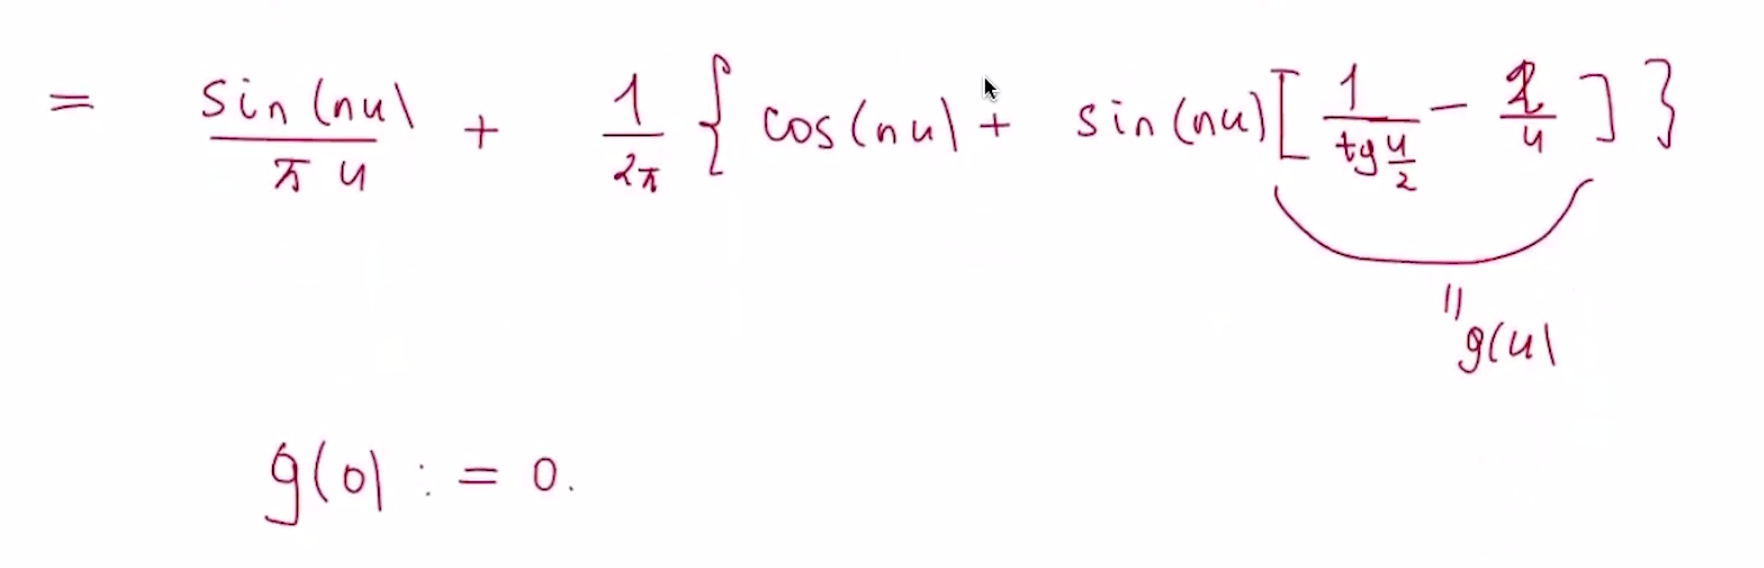 = sin(nu) / πu + 1/2π { cos(nu) + sin(nu) [ 1/tg u/2 − 2/u ] }
= g(u)
g(0) := 0.